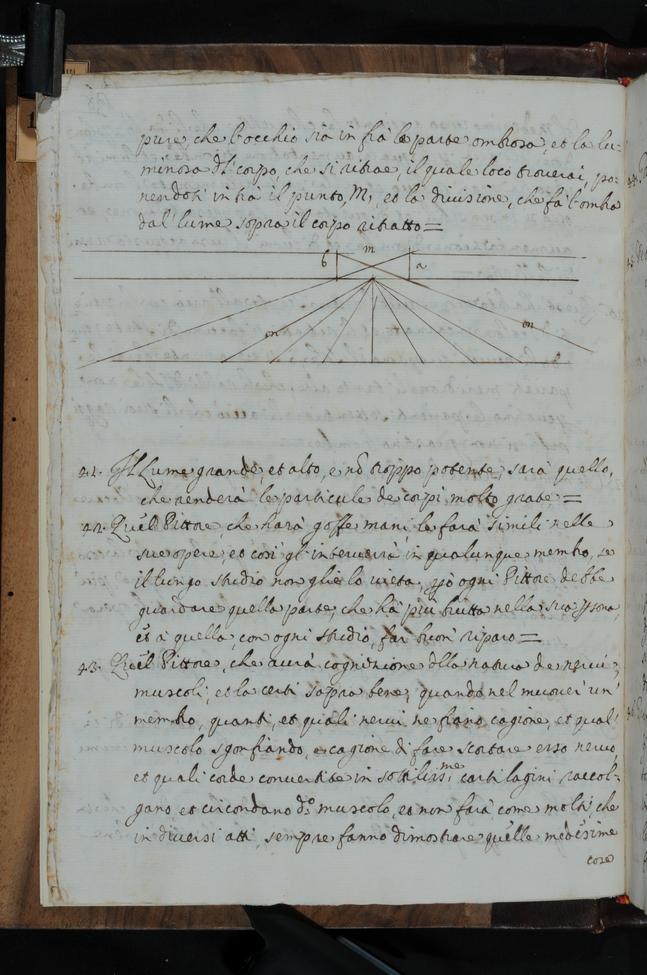 pure, che l'occhio sia in fra la parte ombrosa, et la lu-
minosa dl corpo, che si ritrae, il quale loco troverai, po-
nendoti intra il punto, M, et la divisione, che fa l'ombra
dal lume sopra il corpo ritratto=
m
b a
m m
41. Il Lume grande, et alto, e nō troppo potente, sarà quello,
che renderà le particule de corpi molto grate=
42. Quel Pittore, che harà goffe mani le farà simili nelle
sue opere, et così gl'interverrà in qualunque membro, se
il lungo studio non glielo vieta, ogni Pittore debbe
guardare quella parte, che hà più brutta nella sua
et a quella, con ogni studio, far buon riparo=
43. Quel Pittore, che avrà cognitione dlla natura de nervi,
muscoli, et lacerti saprà bene, quando nel muover un
membro, quanti, et quali nervi ne siano cagione, et qual
muscolo sgonfiando, e cagione di fare scortare esso nervo
et quali corde convertite in sottiliss.me cartilagini raccol-
gano et circondano d.o muscolo, et non farà come molti che
in diversi atti, sempre fanno dimostrare quelle medesime
cose